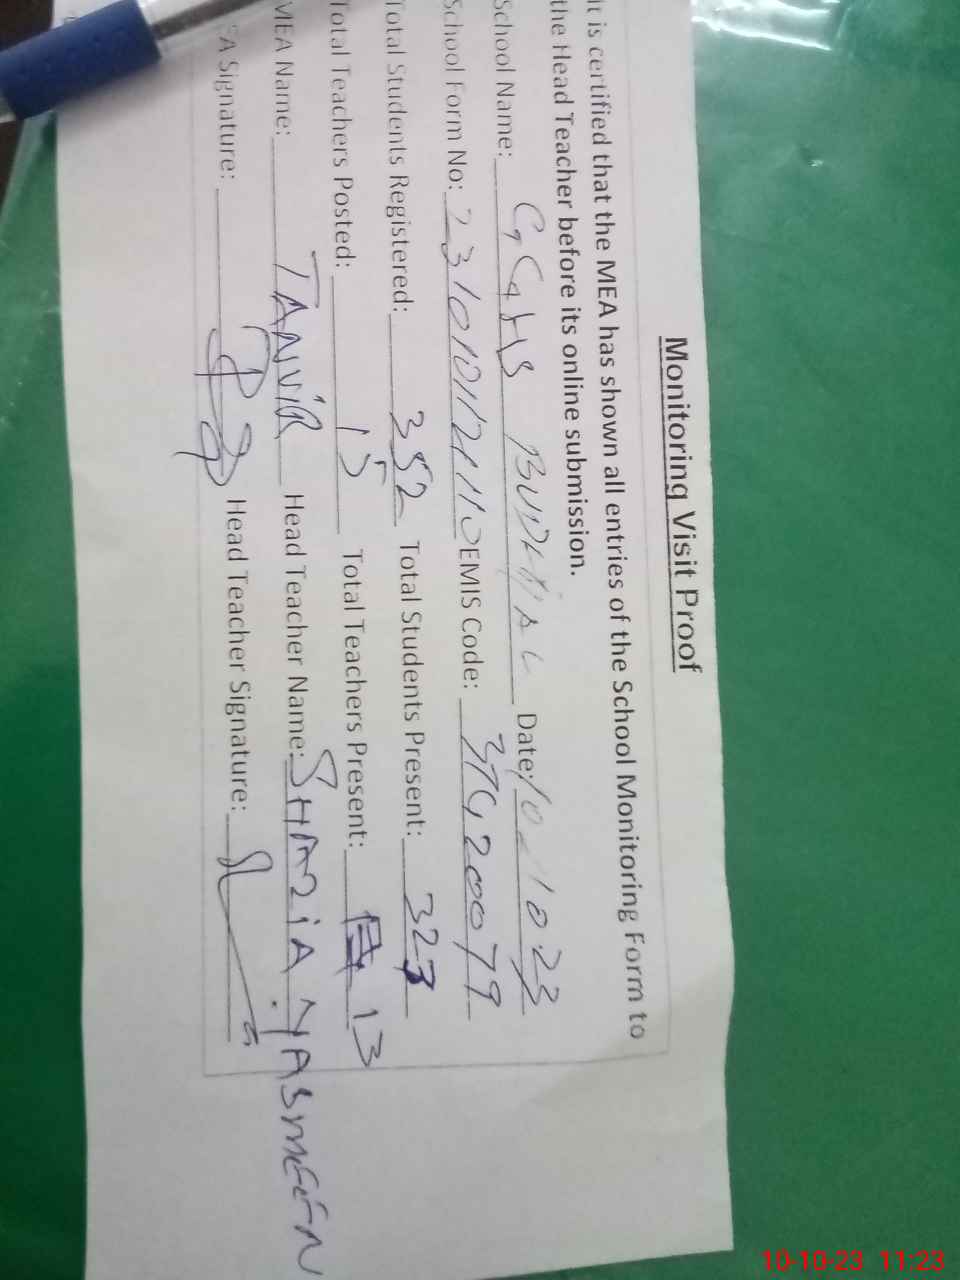 Monitoring Visit Proof
It is certified that the MEA has shown all entries of the School Monitoring Form to
the Head Teacher before its online submission.
School Name: GGHS BUDHIAL Date: 10-10-23
School Form No: EMIS Code: 37420079
Total Students Registered: 352 Total Students Present: 323
Total Teachers Posted: 15 Total Teachers Present: 13
MEA Name: TANVIR Head Teacher Name: SHAZIA YASMEEN
EA Signature: Head Teacher Signature:
10-10-23 11:23